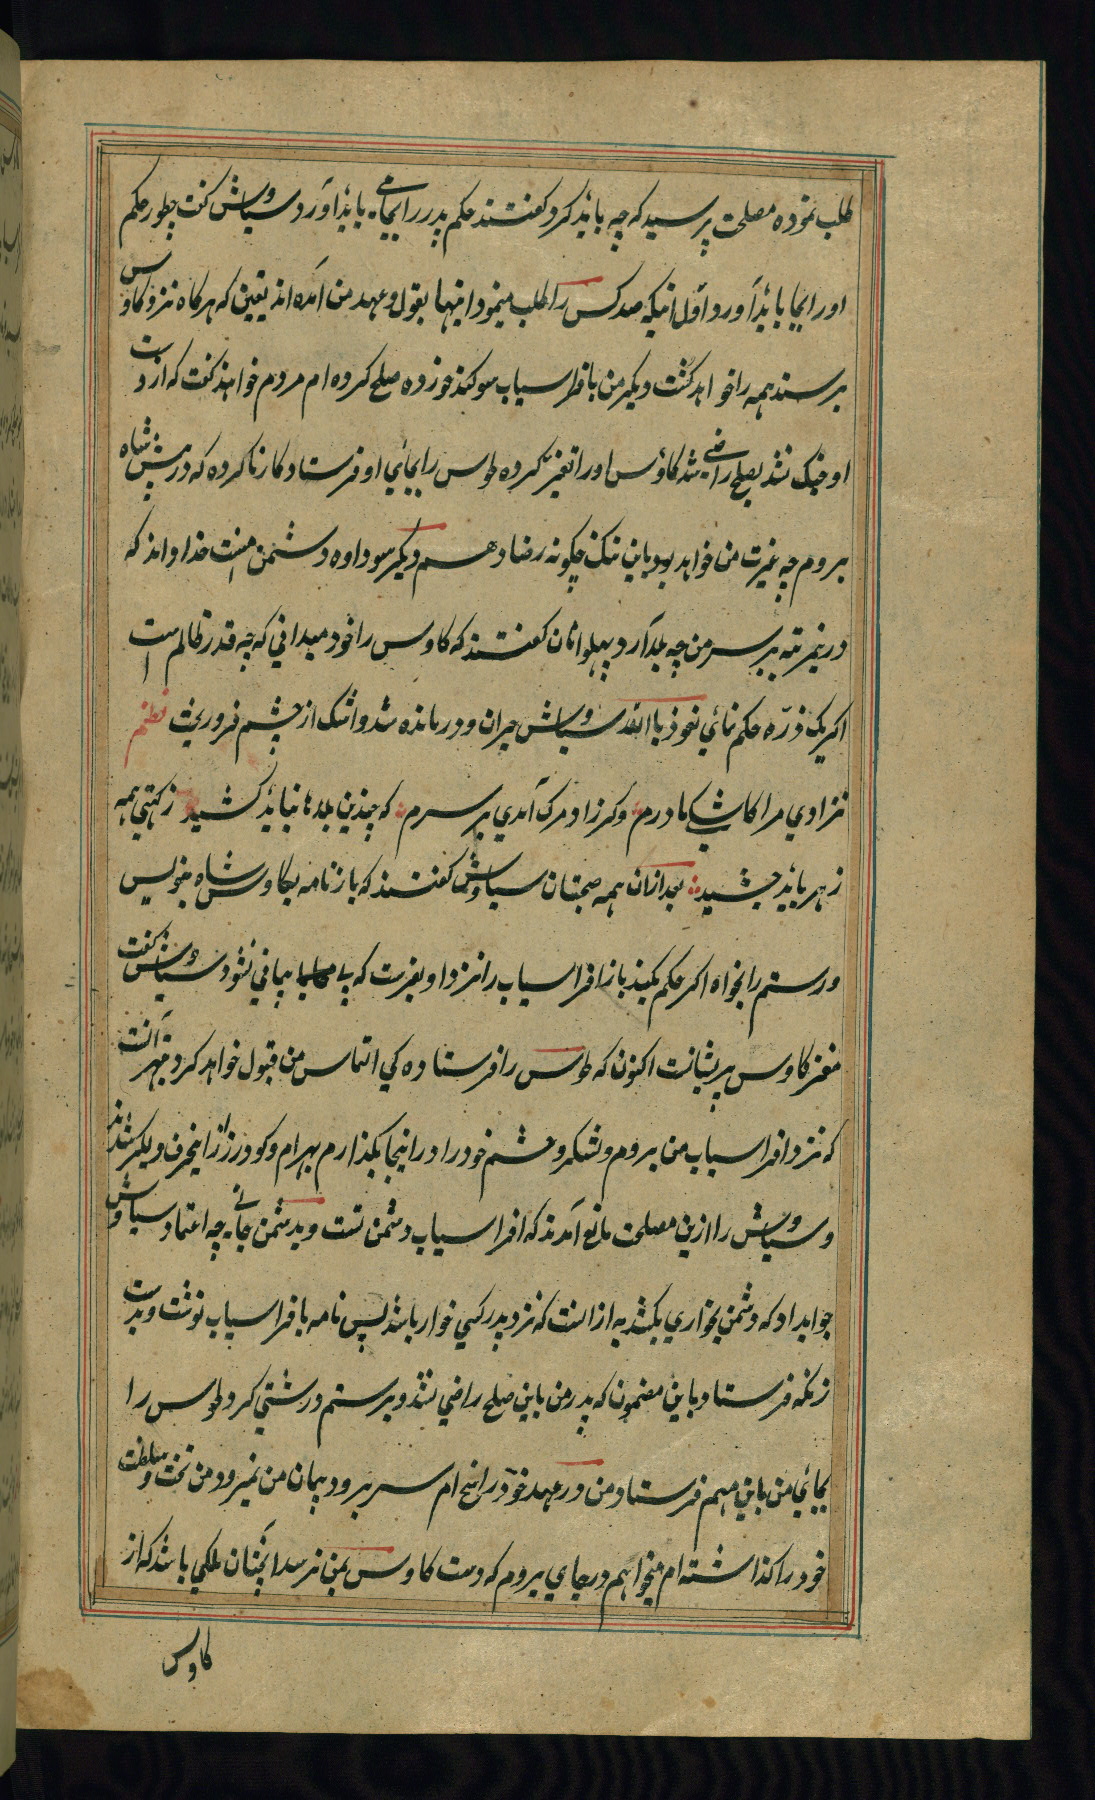 طلب نموده مصلحت پرسید که چه باید کرد کفتند حکم پدر را بجای باید آورد سیاوش کفت چطور حکم
او را بجا باید آورد اوّل انیکه صد کس را طلب مینمود اینها بقول و عهد من آمده اند یقین که هرکاه نزد کاوس
برسند همه را خواهد کشت دیکر من بافراسیاب سوکند خورده صلح کرده ام مردم خواهند کفت که از دست
او جنک نشد بصلح راضی شد کاوس او را تغیر کرده طوس را بجائی او فرستاد کار ناکرده که در پیش شاه
بروم چه غیرت من خواهد بود باین ننک چکونه رضا دهم دیکر سوداوه دشمن منست خدا داند که
درینمرتبه بر سر من چه بلا آرد پهلوانان کفتند که کاوس را خود میدانی که چه قدر ظالم است
اکر یک ذرّه حکم نمائی نعوذ باالله سیاوش حیران و درمانده شد و اشک از چشم فرو ریخت نظم
نزادی مرا کاشکی مادرم وکر زاد مرک آمدی بر سرم که چندین بلاها نباید کشید ز کیتی همه
زهر باید چشید بعد ازان همه صحبتان سیاوش کفتند که باز نامه بکاوس شاه بنویس
و رستم را بخواه اکر حکم بکیند باز افراسیاب را نزد او بفرست که بی پیمانی نشود سیاوش کفت
مغز کاوس پریشانست اکنون که طوس را فرستاده کی التماس من قبول خواهد کرد بهتر آنست
که نزد افراسیاب من بروم و لشکر و حشم خود را در اینجا بکذارم بهرام و کودرز از اینحرف دیکر شدند
و سیاوش را ازین مصلحت مانع آمدند که افراسیاب دشمن تست و بدشمن جانی چه اعتماد سیاوش
جوابداد که دشمن بخواری بکشد به از انست که نزد پدر کسی خوار باشد پس نامه بافراسیاب نوشت و بدست
زنکه فرستاد باین مضمون که پدر من باین صلح راضی نشد و برستم درشتی کرد و طوس را
بجائی من باین مهم فرستاد و من در عهد خود راسخ ام سر برود پیمان من نمیرود من تخت و سلطنت
خود را کذاشته ام میخواهم در جای بروم که دست کاوس بمن نرسد اینچنان ملکی باشد که از
کاوس